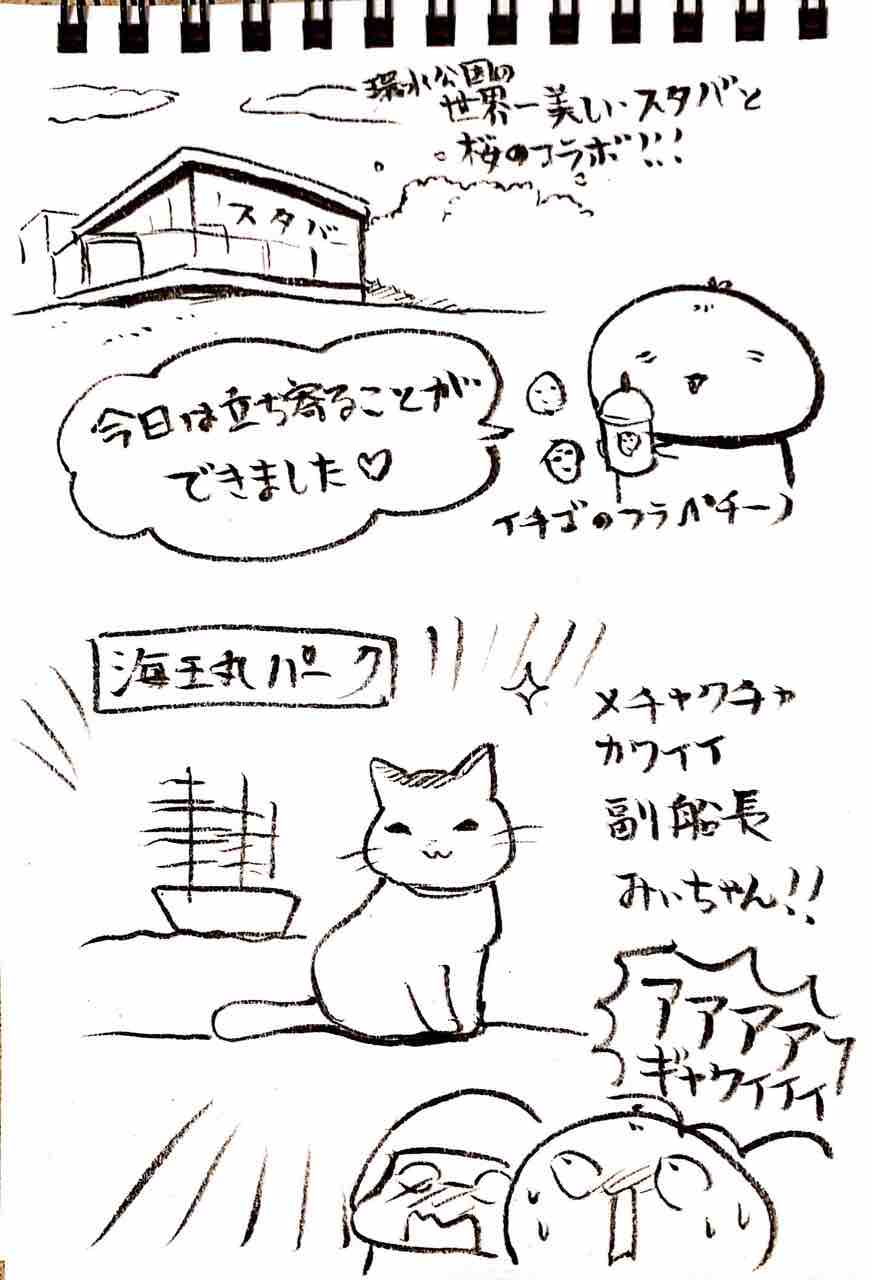 環水公園の
世界一美しいスタバと
桜のコラボ!!!
スタバー
今日は立ち寄ることが
できました♡
イチゴのフラペチーノ
海王丸パーク
メチャクチャ
カワイイ
副船長
みぃちゃん!!
アアアア
ギャワイイイ